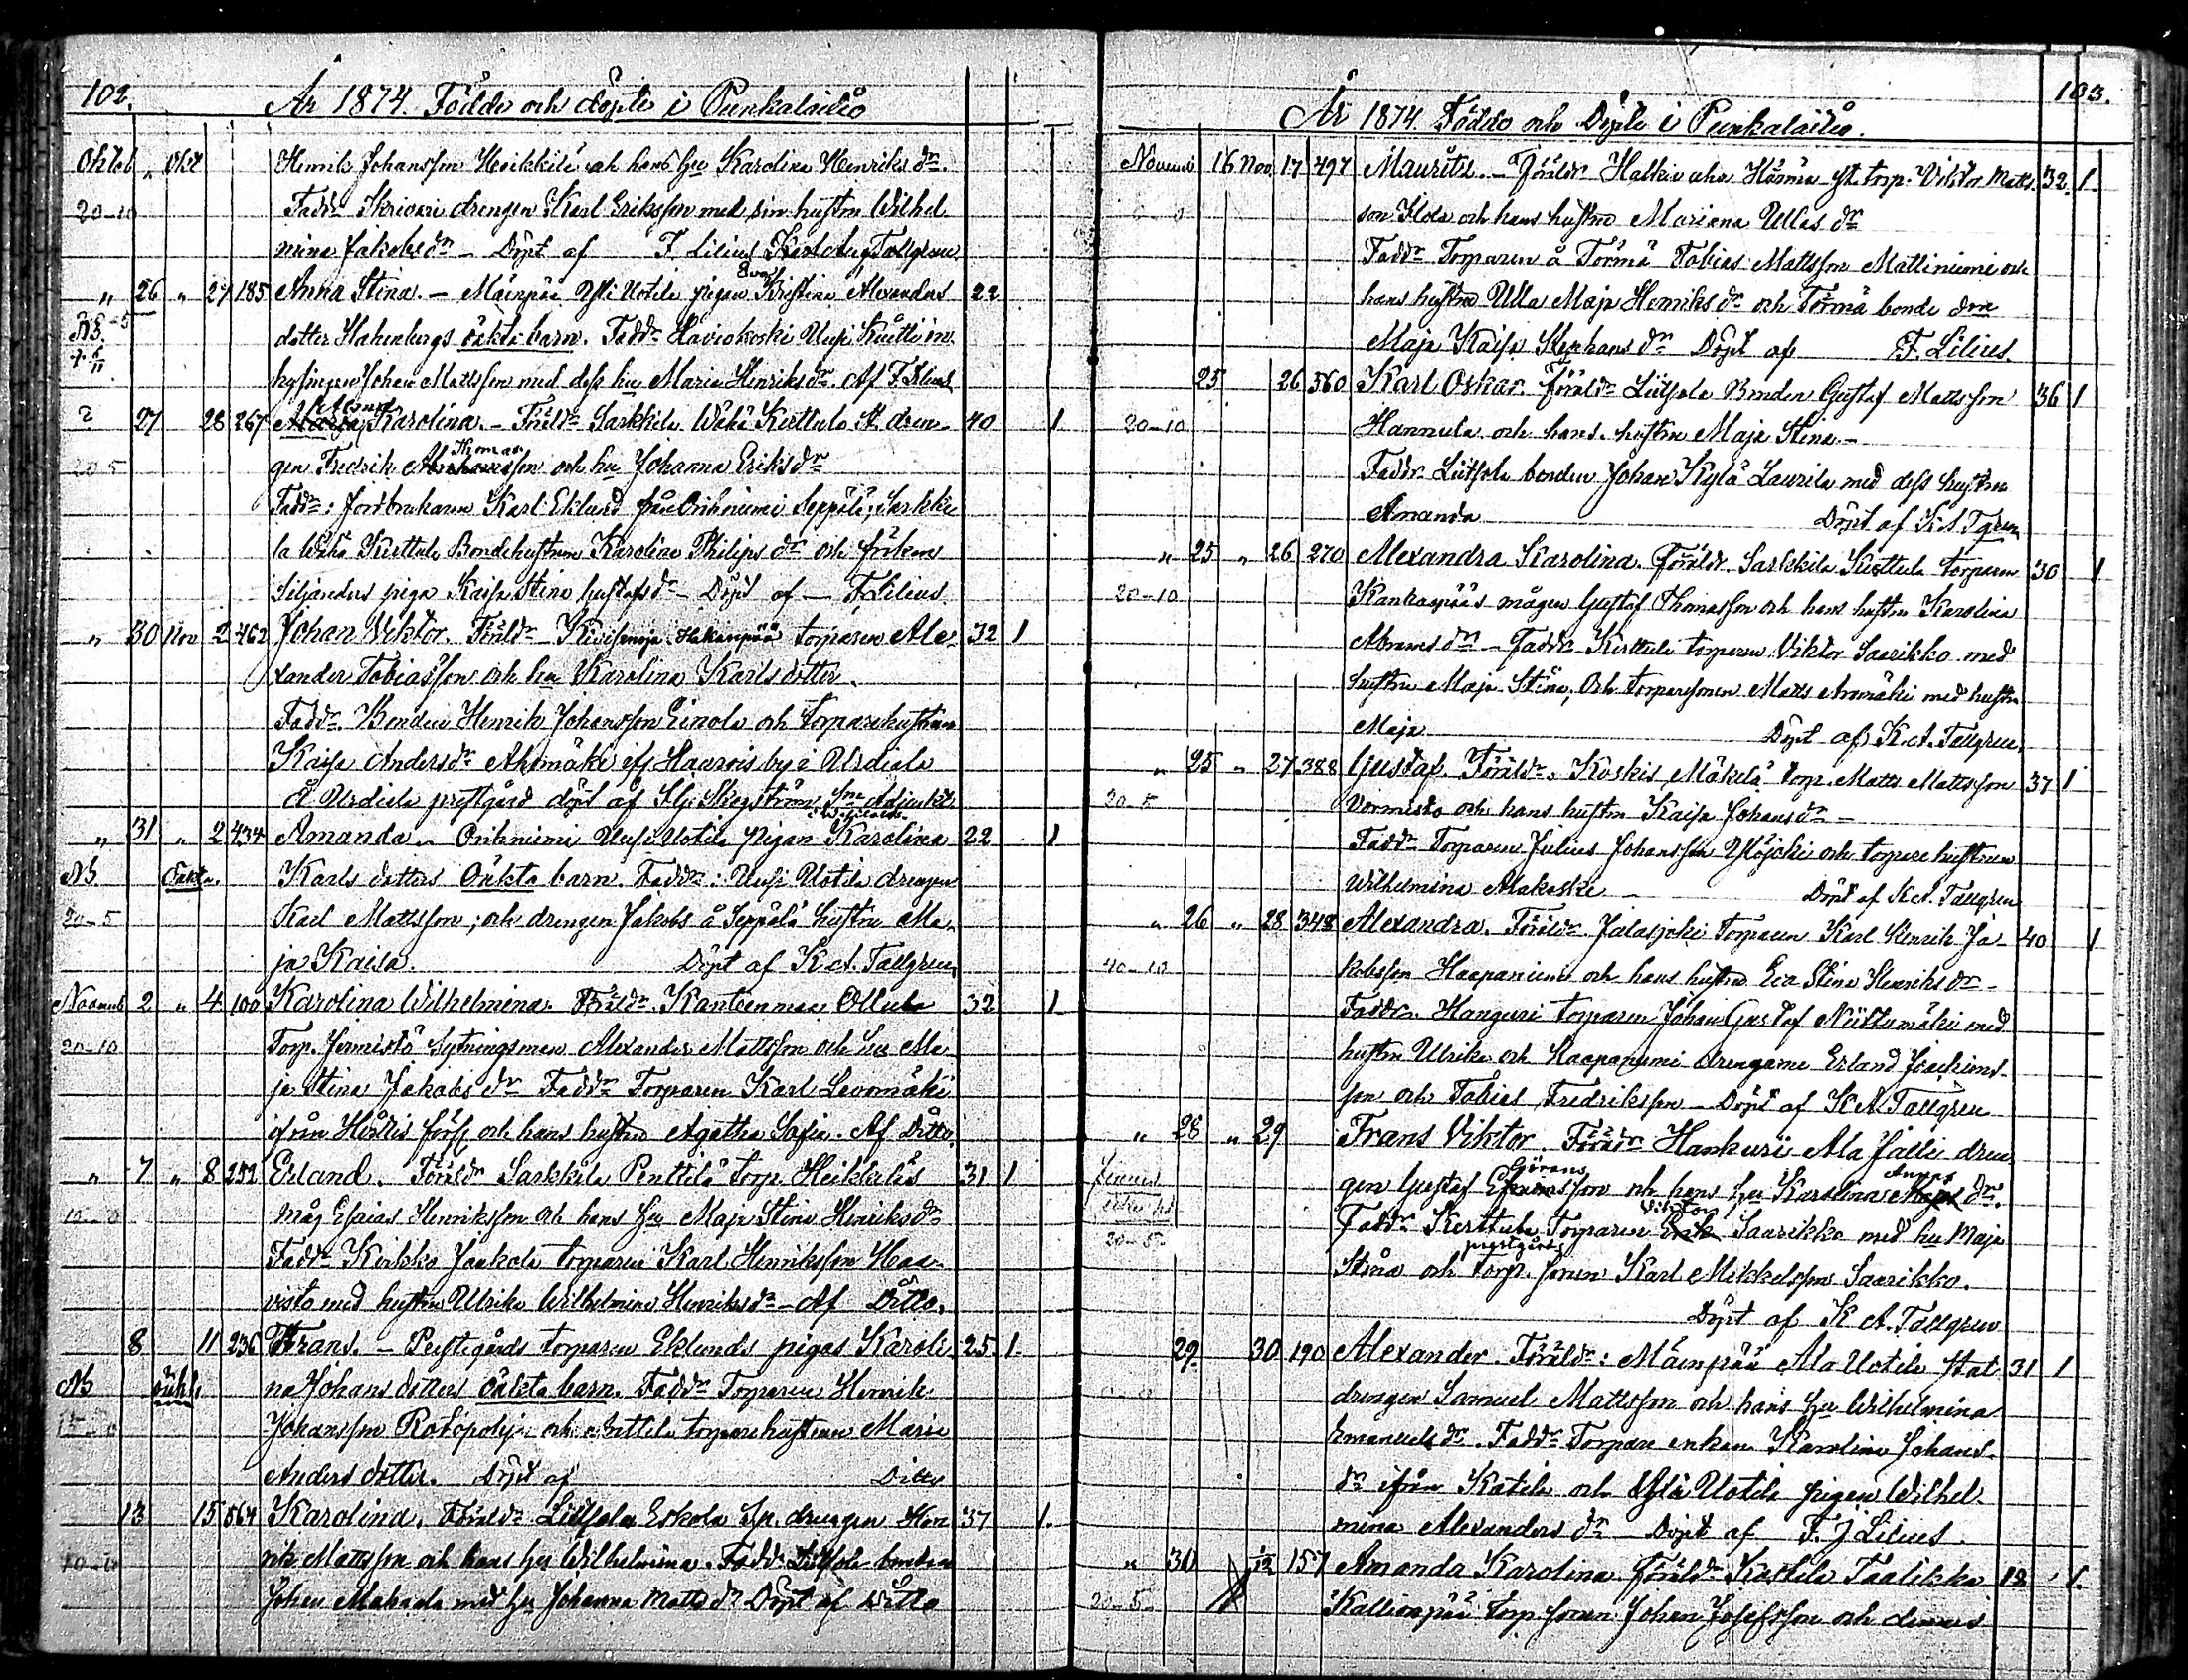 102.
År 1874. Födde och döpte i Punkalaidio
Oktob " Okt Henrik Johansson Heikkilä och hans hu Karolina Henriks dr.
20-10 Faddr Skrivari drengen Karl Eriksson med sin hustru Wilhel
mina Jakobs dr – Döpt af F. Lilius Karl Aug Tallgren
" 26 " 27 185 Anna Stina. – Mäenpää Yli Uotila pigan Eva Kristina Alexanders 22
NB. dotter Hakenbergs oäkta barn. Faddr Haviokoski Uusi Knutti in
hysingen Johan Mattsson med dess hu Maria Henriks dr. Af F. Lilius
27 28 267 Maria Karolina. – Föräldr Sarkkila Wähä Kerttula St. dren- 40 1
20-5 gen Fredrik Abrahamsson Thomas och hu Johanna Eriks dr
Faddr: Jordbrukaren Karl Eklund från Orihniemi Seppälä; Sarkki
la Wähä Kerttula Bondehustrun Karolina Philips dr och fröken
Siljanders piga Kaisa Stina Gustafs dr – Döpt af – F. Lilius
" 30 Nov 2 462 Johan Viktor. Föräldr Kivisenoja Hakanpää torparen Ale- 32 1
xander Tobiasson och hu Karolina Karls dotter.
Faddr. Bonden Henrik Johansson Einola och torparehustrun
Kaisa Anders dr Ahomäki ifr Haarois by i Urdiala
å Urdiala prestgård döpt af
" 31 " 2 434 Amanda – Orihniemi Uusi Uotila pigan Karolina 22 1
NB Oäkta. Karls dotters Oäkta barn. Faddr: Uusi Uotila drengen
20-5 Karl Mattsson; och drengen Jakobs å Seppälä hustru Ma-
ja Kaisa. Döpt af K. A. Tallgren
Novemb 2 " 4 100 Karolina Wilhelmina. Föräldr. Kanteenmaa Ollula 32 1
20-10 Torp. Jermistö Sytningsman Alexander Mattsson och hu Ma
ja Stina Jakobs dr Faddr Torparen Karl Levomäki
ifrån Hvittis förs. och hans hustru Agatha Sofia. Af Ditto.
" 7 " 8 252 Erland. Föräldr Sarkkila Penttilä Torp. Heikkiläs 31 1
10-0 måg Esaias Henriksson och hans hu Maja Stina Henriks dr
Faddr Kirkko Jaakola torparen Karl Henriksson Haa-
visto med hustru Ulrika Wilhelmina Henriks dr – Af Ditto.
8 11 236 Frans. – Prestgårds torparen Eklunds pigas Karoli 25 1
NB oäkt. na Johans dotters oäkta barn. Faddr Torparen Henrik
Johansson Rotopohja och Anttila torparehustrun Maria
Anders dotter. Döpt af Ditto
13 15 564 Karolina. Föräldr Liitsola Eskola Sp. drengen Hen 37 1.
10-0 rik Mattsson och hans hu Wilhelmina. Faddr Liitsola bonden
Johan Mahala med hu Johanna Matts dr Döpt af Ditto
103.
År 1874. Födde och Döpte i Punkalaidio.
Novemb 16 Nov. 17 497 Maurits. – Föräldr Halkivaha Hörmä gd. torp. Viktor Matts. 32 1
son Kola och hans hustru Mariana Ullas dr
Faddr Torparen å Törmä Tobias Mattsson Mattiniemi och
hans hustru Ulla Maja Henriks dr och Törmä bonde dra
Maja Kaisa Stephans dr Döpt af F. Lilius.
25 26 560 Karl Oskar. Föräldr Liitsola Bonden Gustaf Mattsson 36 1
20-10 Hannula och hans hustru Maja Stina –
Faddr. Liitsola bonden Johan Kylä Laurila med dess hustru
Amanda Döpt af K. A. Tgren
" 25 " 26 270 Alexandra Karolina. Föräldr. Sarkkila Kerttula torparen 30 1
20-10 Kankaapääs mågen Gustaf Thomasson och hans hustru Karolina
Abrams dr – Faddr Kerttula torparen Viktor Saarikko med
hustru Maja Stina, Och torparesonen Matts Aromäki med hustru
Maja Döpt af K. A. Tallgren.
" 25 " 27 388 Gustaf. Föräldr. Koskis, Mäkelä torp. Matts Mattsson 37 1
Vormisto och hans hustru Kaisa Johans dr –
Faddr Torparen Julius Johansson Ylöjoki och torpare hustrun
Wilhelmina Alakoski – Döpt af K. A. Tallgren
" 26 " 28 348 Alexandra. Föräldr. Jalasjoki Torparen Karl Henrik Ja- 40 1
40-10 kobsson Haapaniemi och hans hustru Eva Stina Henriks dr –
Faddr. Hanguri torparen Johan Gustaf Niittumäki med
hustru Ulrika och Haapaniemi drengarne Erland Joachims-
son och Tobias Fredriksson – Döpt af K A. Tallgren
" 28 " 29 Frans Viktor. Föräldr Hankuri Ala Jalli dren
gen Gustaf Göransson och hans hu Karolina Annas dr.
Faddr Kerttula Torparen Erik Viktor Saarikko med hu Maja
Stina och prestgårds Torp. sonen Karl Mikkelsson Saarikko.
Döpt af K A. Tallgren
29. 30 190 Alexander. Föräldr: Mäenpää Ala Uotila Stat 31 1
drengen Samuel Mattsson och hans hu Wilhelmina
Emanuels dr. Faddr Torpare enkan Karolina Johans-
dr ifrån Kotila och Ylä Uotila pigan Wilhel-
mina Alexanders dr – Döpt af F. J Lilius.
" 30 1/12 157 Amanda Karolina. Föräldr Kostila Taalikka 1.
20-5 Kallionpää torp. sonen Johan Josefsson och dennes